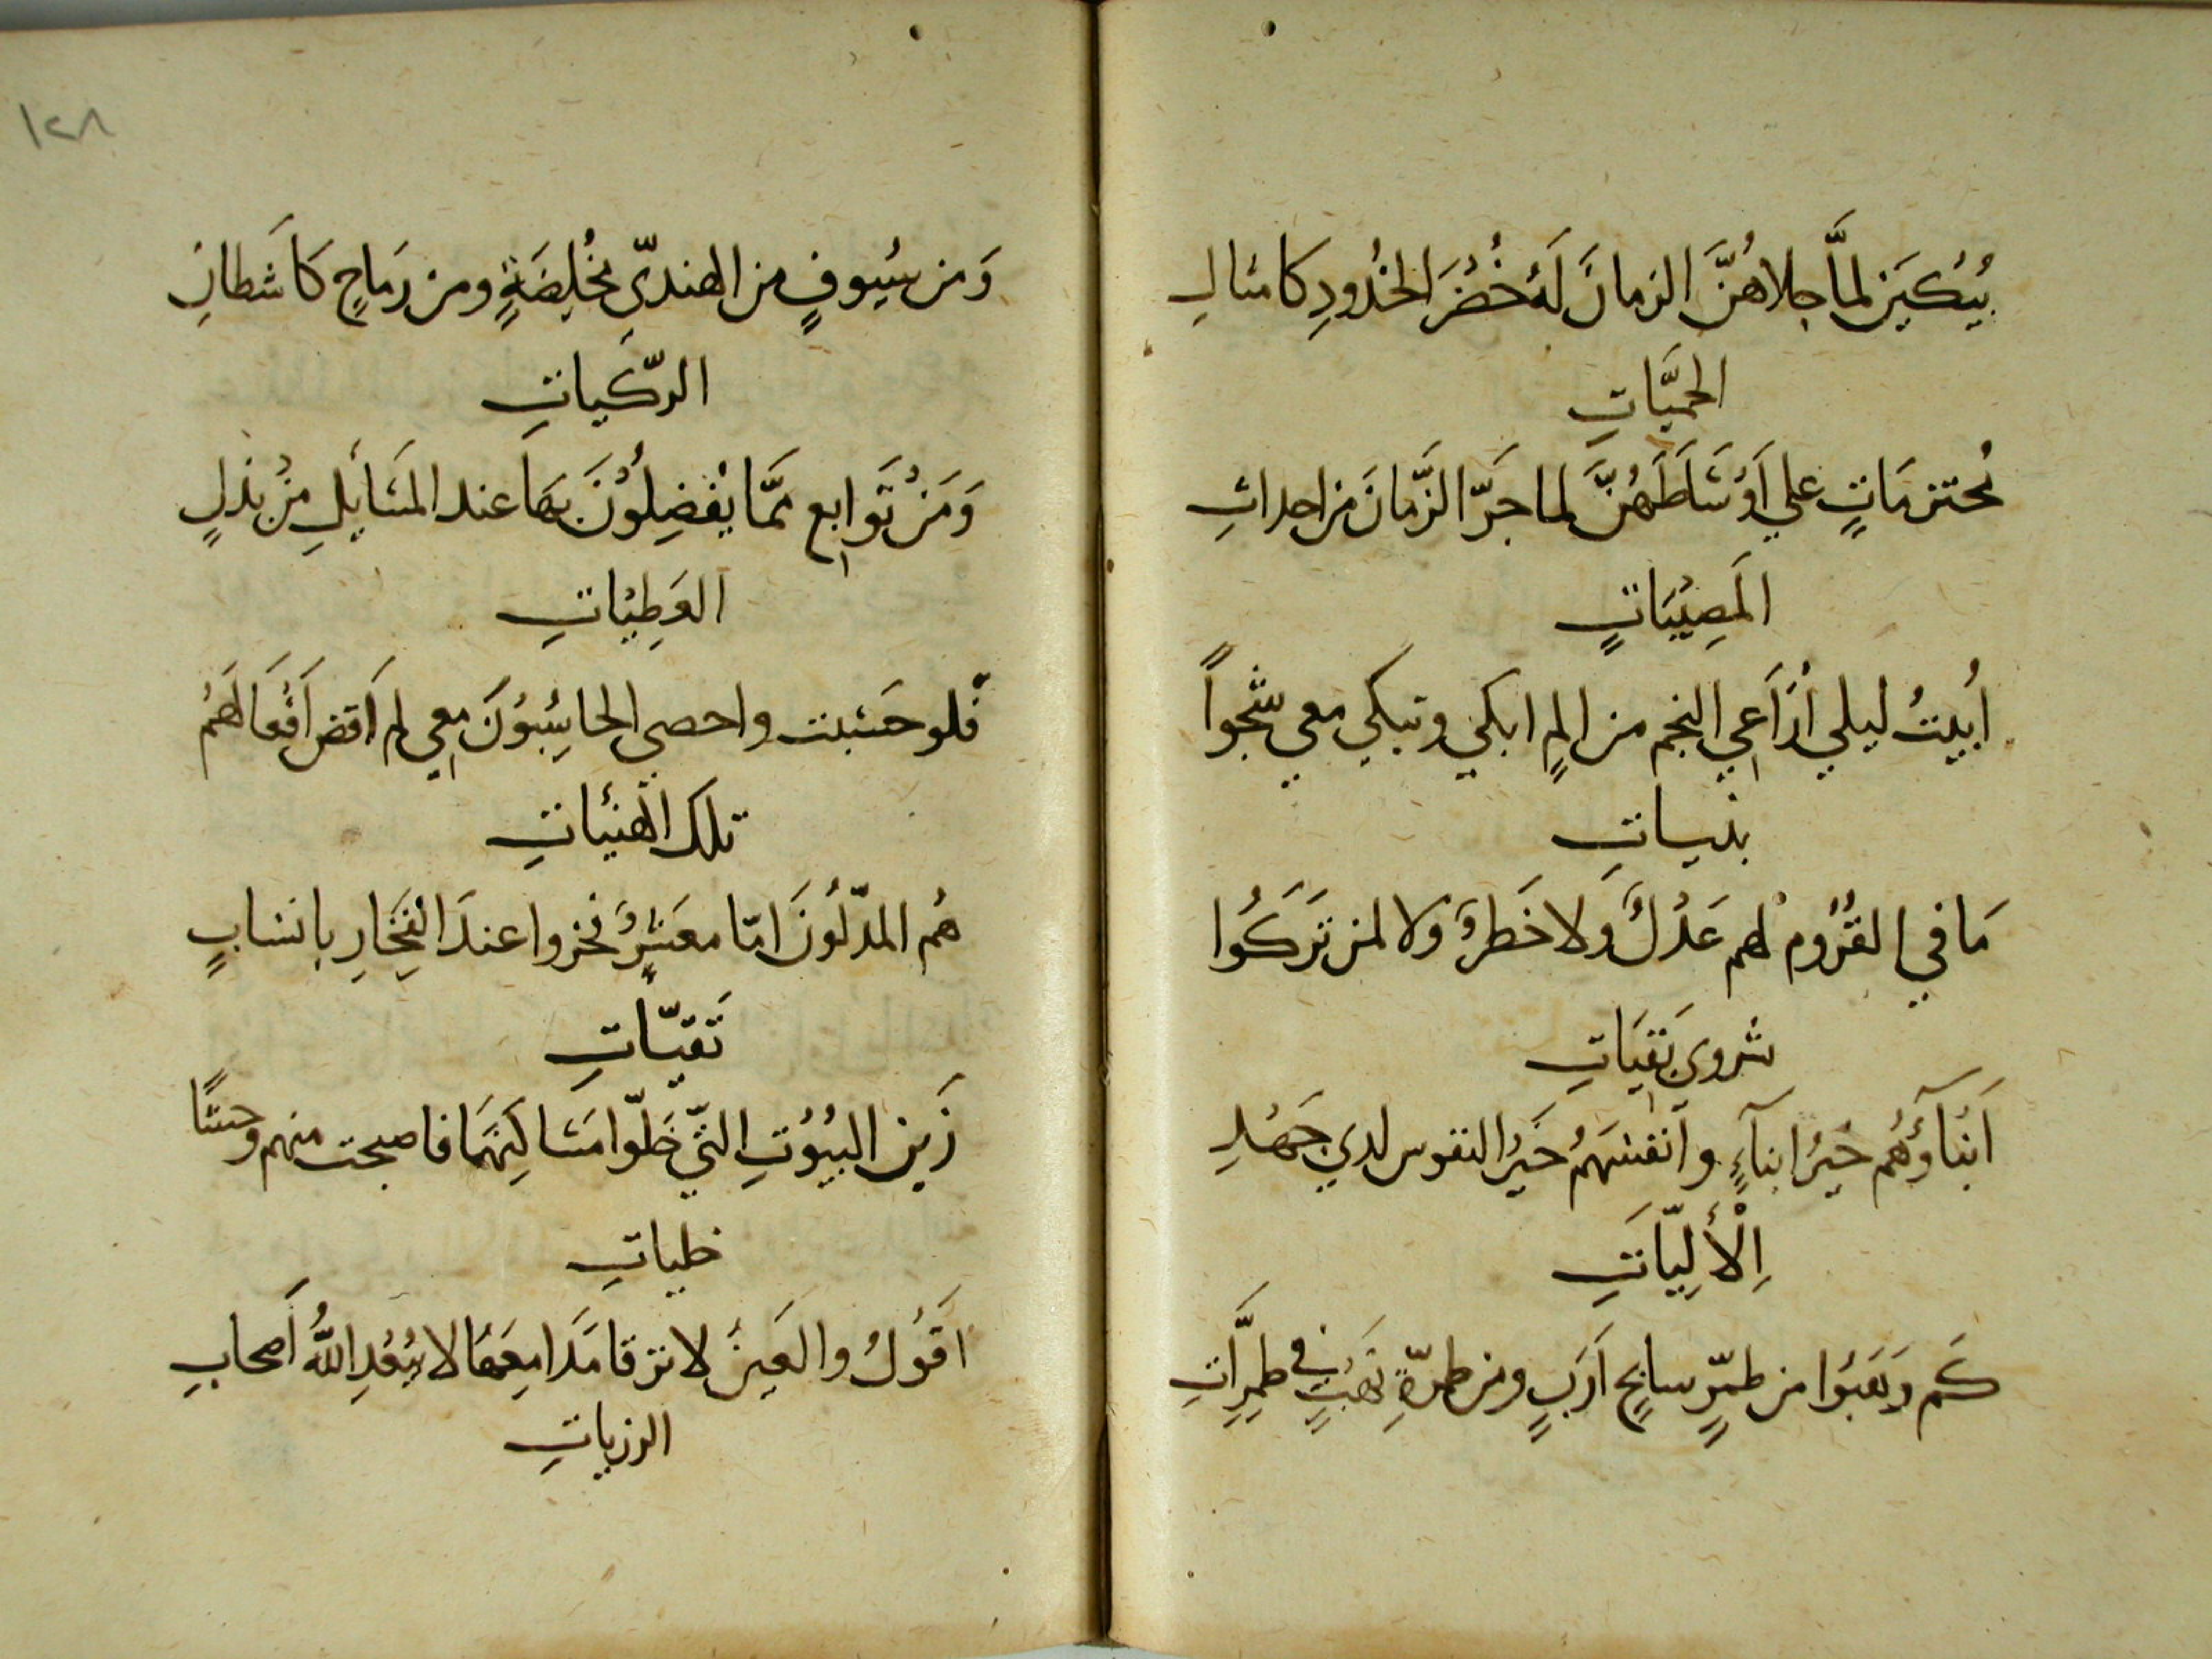 يُبْكَيْنَ لمَّا جلاهُنَّ الزمانَ لَهُ خُضُرَ الخُدُودِ كامثالِ
الحميَّاتِ
مُحتزمَاتٍ علي اَوْسَاطَهُنَّ لما جَرّ الزَّمانَ من احداثِ
المَصِيْبَاتٍ
اُبيْتُ ليلي اُرَاَعِي النجم من المٍ ابكي وتبكي معي شجواً
بنيـاتِ
مَا في القُرُوم لهم عَدْلٌ وَلا خَطَرٌ وَلا لمن تَرَكُوا
شروي بَقيَاتِ
اَبْنَآؤُهُم خَيْرُ ابنآءٍ وَاَنفسَهُمُ خَيَرُ النفوس لدي جَهْدِ
اِلْأَلِيّاَتِ
كَم وَهَبُوا من طمِّرٍ سابحٍ اَرَبٍ ومن طمرّةٍ نَهْبٍ في طمِرَّاتِ
١٢٨
وَمن سُيوفٍ من الهنديّ مُخْلِصَةٍ ومن رِمَاحٍ كَاَشطانِ
الرّكَياتِ
وَمَنْ تَوَابع ممّا يُفضِلُوْنَ بهَا عند المَسَايلِ مِنْ بَذْلٍ
العَطِيْاتِ
فلو حَسَبت واحصي الحاسِبُوْنَ معي لم اَقض اَفْعَالَهُمُ
تلك الهَنيْاتِ
هُم المدّلُونَ امّا معَشرٌ فخروا عندَ الفِخَارِ بانسَابٍ
تَقيّـاتِ
زَين البيُوْتِ التيّ خَلّوا مَسَاكِنَهَا فاصبحت منهم وحشًا
خليـاتِ
اقَوْلُ والعَينُ لا ترقا مَدَامِعَهَا لا يُبْعُدِ اللّٰهُ اَصحابِ
الرزيـاتِ